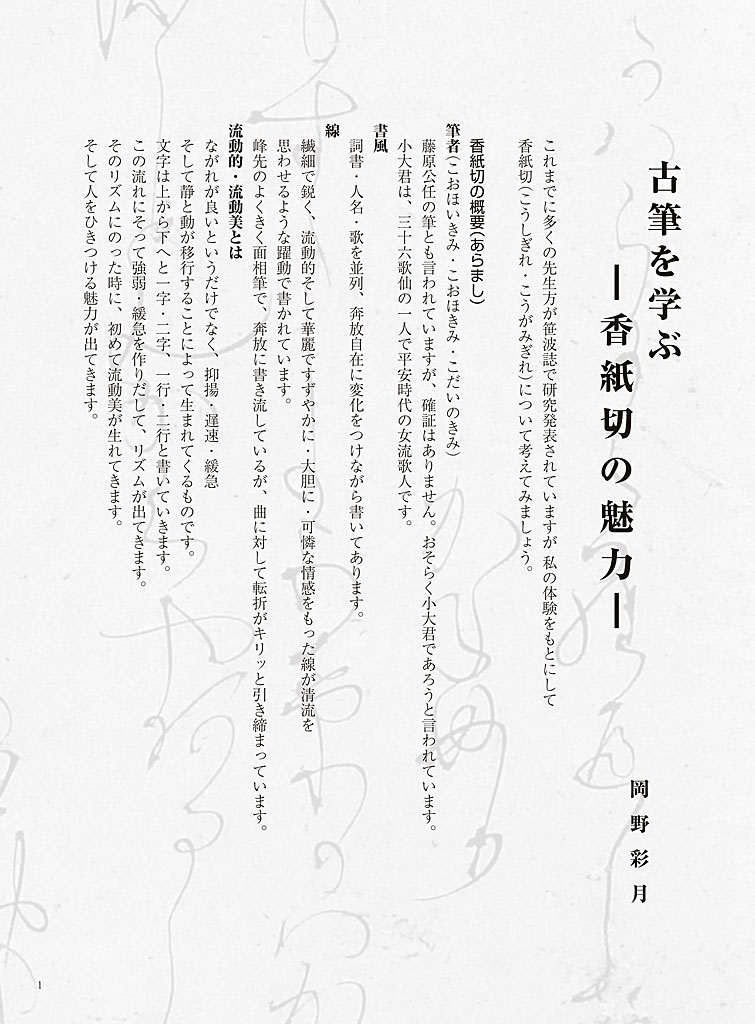 古筆を学ぶ
―香紙切の魅力―
岡野彩月
これまでに多くの先生方が笹波誌で研究発表されていますが 私の体験をもとにして
香紙切(こうしぎれ・こうがみぎれ)について考えてみましょう。
香紙切の概要(あらまし)
筆者(こおほいきみ・こおほきみ・こだいのきみ)
藤原公任の筆とも言われていますが、確証はありません。おそらく小大君であろうと言われています。
小大君は、三十六歌仙の一人で平安時代の女流歌人です。
書風
詞書・人名・歌を並列、奔放自在に変化をつけながら書いてあります。
線
繊細で鋭く、流動的そして華麗ですずやかに・大胆に・可憐な情感をもった線が清流を
思わせるような躍動で書かれています。
峰先のよくきく面相筆で、奔放に書き流しているが、曲に対して転折がキリッと引き締まっています。
流動的・流動美とは
ながれが良いというだけでなく、抑揚・遅速・緩急
そして静と動が移行することによって生まれてくるものです。
文字は上から下へと一字・二字、一行・二行と書いていきます。
この流れにそって強弱・緩急を作りだして、リズムが出てきます。
そのリズムにのった時に、初めて流動美が生れてきます。
そして人をひきつける魅力が出てきます。
1